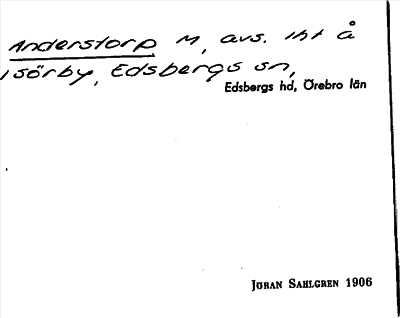 Anderstorp M, avs. iht å
Isörby, Edsbergs sn,
Edsbergs hd, Örebro län
JÖRAN SAHLGREN 1906